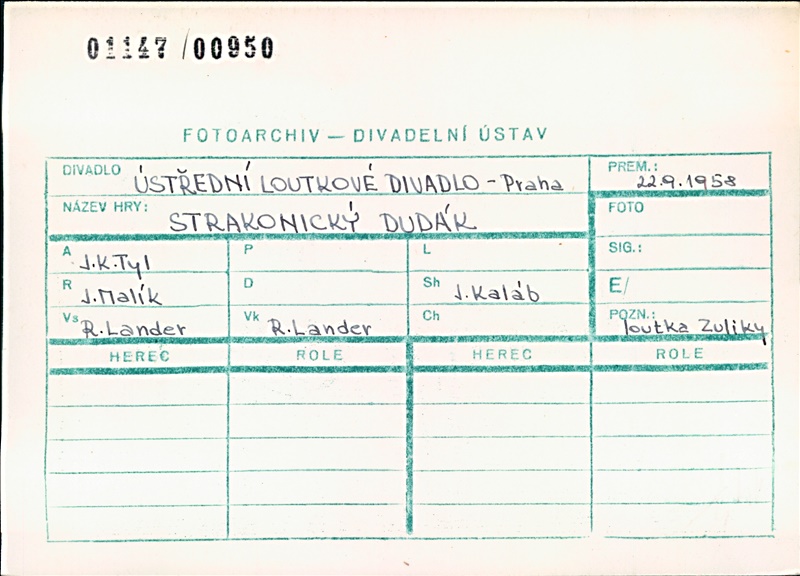 01147/00950
FOTOARCHIV — DIVADELNÍ ÚSTAV
DIVADLO ÚSTŘEDNÍ LOUTKOVÉ DIVADLO - Praha
PREM.: 22.9.1958
NÁZEV HRY: STRAKONICKÝ DUDÁK
FOTO
A J.K.Tyl
P
L
SIG.:
R J.Malík
D
Sh J.Kaláb
E/
Vs R.Lander
Vk R.Lander
Ch
POZN.: loutka Zuliky
HEREC ROLE HEREC ROLE